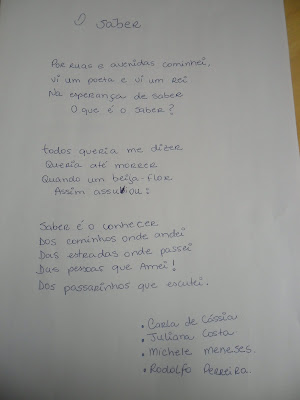 O Saber
Por ruas e avenidas caminhei,
vi um poeta e vi um rei
Na esperança de saber
O que é o saber?
todos queria me dizer
Queria até morrer
Quando un beija-flor
Assim assuviou:
Saber é o conhecer
Dos caminhos onde andei
Das estradas onde passei
Das pessoas que Amei!
Dos passarinhos que escutei.
• Carla de Cássia
• Juliana Costa
• Michele meneses.
• Rodolfo Perreira.